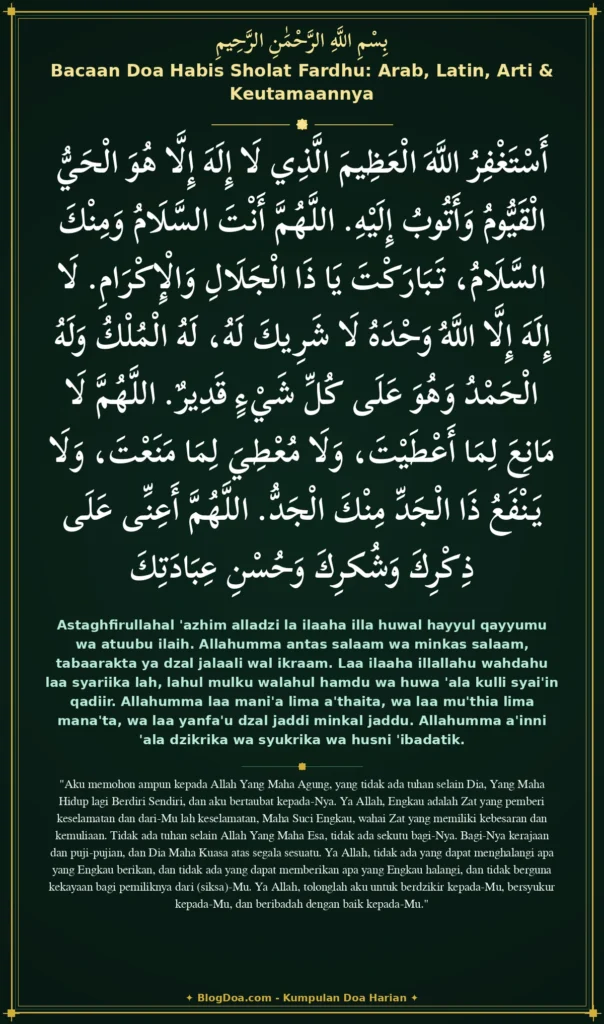 بِسْمِ اللَّهِ الرَّحْمَٰنِ الرَّحِيمِ
Bacaan Doa Habis Sholat Fardhu: Arab, Latin, Arti &
Keutamaannya
أَسْتَغْفِرُ اللَّهَ الْعَظِيمَ الَّذِي لَا إِلَهَ إِلَّا هُوَ الْحَيُّ
الْقَيُّومُ وَأَتُوبُ إِلَيْهِ. اللَّهُمَّ أَنْتَ السَّلَامُ وَمِنْكَ
السَّلَامُ، تَبَارَكْتَ يَا ذَا الْجَلَالِ وَالْإِكْرَامِ. لَا
إِلَهَ إِلَّا اللَّهُ وَحْدَهُ لَا شَرِيكَ لَهُ، لَهُ الْمُلْكُ وَلَهُ
الْحَمْدُ وَهُوَ عَلَى كُلِّ شَيْءٍ قَدِيرٌ. اللَّهُمَّ لَا
مَانِعَ لِمَا أَعْطَيْتَ، وَلَا مُعْطِيَ لِمَا مَنَعْتَ، وَلَا
يَنْفَعُ ذَا الْجَدِّ مِنْكَ الْجَدُّ. اللَّهُمَّ أَعِنِّى عَلَى
ذِكْرِكَ وَشُكرِكَ وَحُسْنِ عِبَادَتِكَ
Astaghfirullahal 'azhim alladzi la ilaaha illa huwal hayyul qayyumu
wa atuubu ilaih. Allahumma antas salaam wa minkas salaam,
tabaarakta ya dzal jalaali wal ikraam. Laa ilaaha illallahu wahdahu
laa syariika lah, lahul mulku walahul hamdu wa huwa 'ala kulli syai'in
qadiir. Allahumma laa mani'a lima a'thaita, wa laa mu'thia lima
mana'ta, wa laa yanfa'u dzal jaddi minkal jaddu. Allahumma a'inni
'ala dzikrika wa syukrika wa husni 'ibadatik.
"Aku memohon ampun kepada Allah Yang Maha Agung, yang tidak ada tuhan selain Dia, Yang Maha
Hidup lagi Berdiri Sendiri, dan aku bertaubat kepada-Nya. Ya Allah, Engkau adalah Zat yang pemberi
keselamatan dan dari-Mu lah keselamatan, Maha Suci Engkau, wahai Zat yang memiliki kebesaran dan
kemuliaan. Tidak ada tuhan selain Allah Yang Maha Esa, tidak ada sekutu bagi-Nya. Bagi-Nya kerajaan
dan puji-pujian, dan Dia Maha Kuasa atas segala sesuatu. Ya Allah, tidak ada yang dapat menghalangi apa
yang Engkau berikan, dan tidak ada yang dapat memberikan apa yang Engkau halangi, dan tidak berguna
kekayaan bagi pemiliknya dari (siksa)-Mu. Ya Allah, tolonglah aku untuk berdzikir kepada-Mu, bersyukur
kepada-Mu, dan beribadah dengan baik kepada-Mu."
✦ BlogDoa.com - Kumpulan Doa Harian ✦